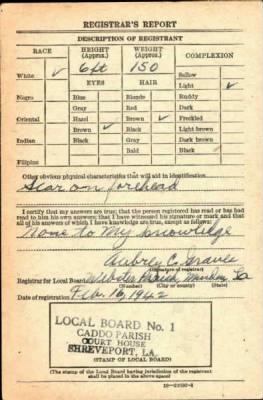 REGISTRAR'S REPORT
DESCRIPTION OF REGISTRANT
RACE HEIGHT (Approx.) WEIGHT (Approx.) COMPLEXION
White ✓ 6 ft 150 Sallow
EYES HAIR Light ✓
Negro Blue Blonde Ruddy
Gray Red Dark
Oriental Hazel Brown ✓ Freckled
Brown ✓ Black Light brown
Indian Black Gray Dark brown
Bald Black
Filipino
Other obvious physical characteristics that will aid in identification
Scar on forehead
I certify that my answers are true; that the person registered has read or has had
read to him his own answers; that I have witnessed his signature or mark and that
all of his answers of which I have knowledge are true, except as follows:
None to My knowledge
Aubrey C. Graves
(Signature of registrar)
Registrar for Local Board Webster Parish, Minden, La
(Number) (City or county) (State)
Date of registration Feb. 16, 1942
LOCAL BOARD No. 1
CADDO PARISH
COURT HOUSE
SHREVEPORT, LA.
(STAMP OF LOCAL BOARD)
(The stamp of the Local Board having jurisdiction of the registrant
shall be placed in the above space.)